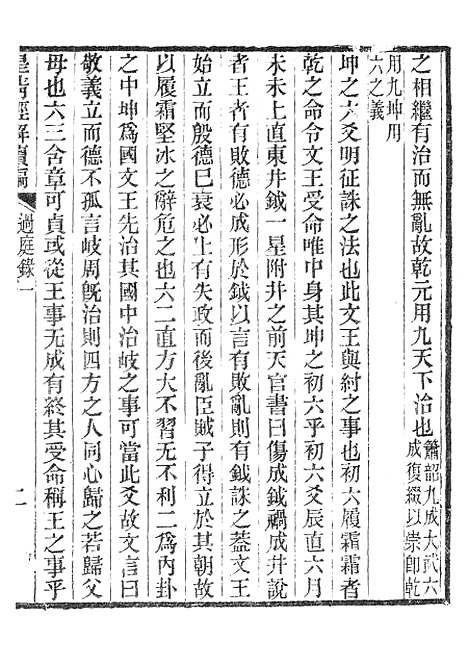 之相繼有治而無亂故乾元用九天下治也簫韶九成大武六成復綴以崇卽乾
用九坤用
六之義
坤之六爻明征誅之法也此文王與紂之事也初六履霜霜者
乾之命令文王受命唯中身其坤之初六乎初六爻辰直六月
未未上直東井鉞一星附井之前天官書曰傷成鉞禍成井說
者王者有敗德必成形於鉞以言有敗亂則有鉞誅之蓋文王
始立而殷德已衰必上有失政而後亂臣賊子得立於其朝故
以履霜堅冰之辭危之也六二直方大不習无不利二爲內卦
之中坤爲國文王先治其國中治岐之事可當此爻故文言曰
敬義立而德不孤言岐周旣治則四方之人同心歸之若歸父
母也六三含章可貞或從王事无成有終其受命稱王之事乎
皇清經解續編
過庭錄一
二